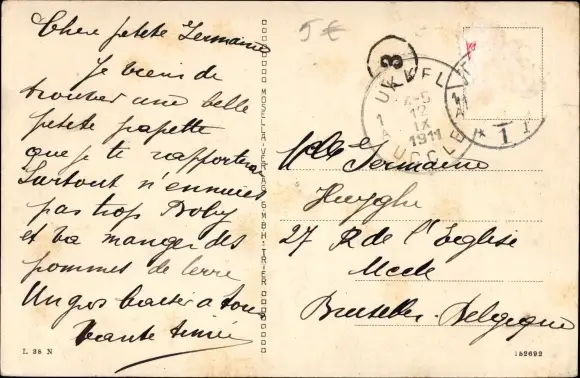 Chère petite Germaine
Je viens de
trouver une belle
petite papette
que je te rapporterai
Surtout n'ennuies
pas trop Boby
et va manger des
pommes de terre
Un gros baiser à tous
tante
L 38 N
MOSELLA-VERLAG G.M.B.H. TRIER
5 €
3
UKKEL
12
IX
1911
UCCLE
1 A
1
Mlle Germaine
Huyghe
27 R de l'Eglise
Uccle
Bruxelles. Belgique
152692